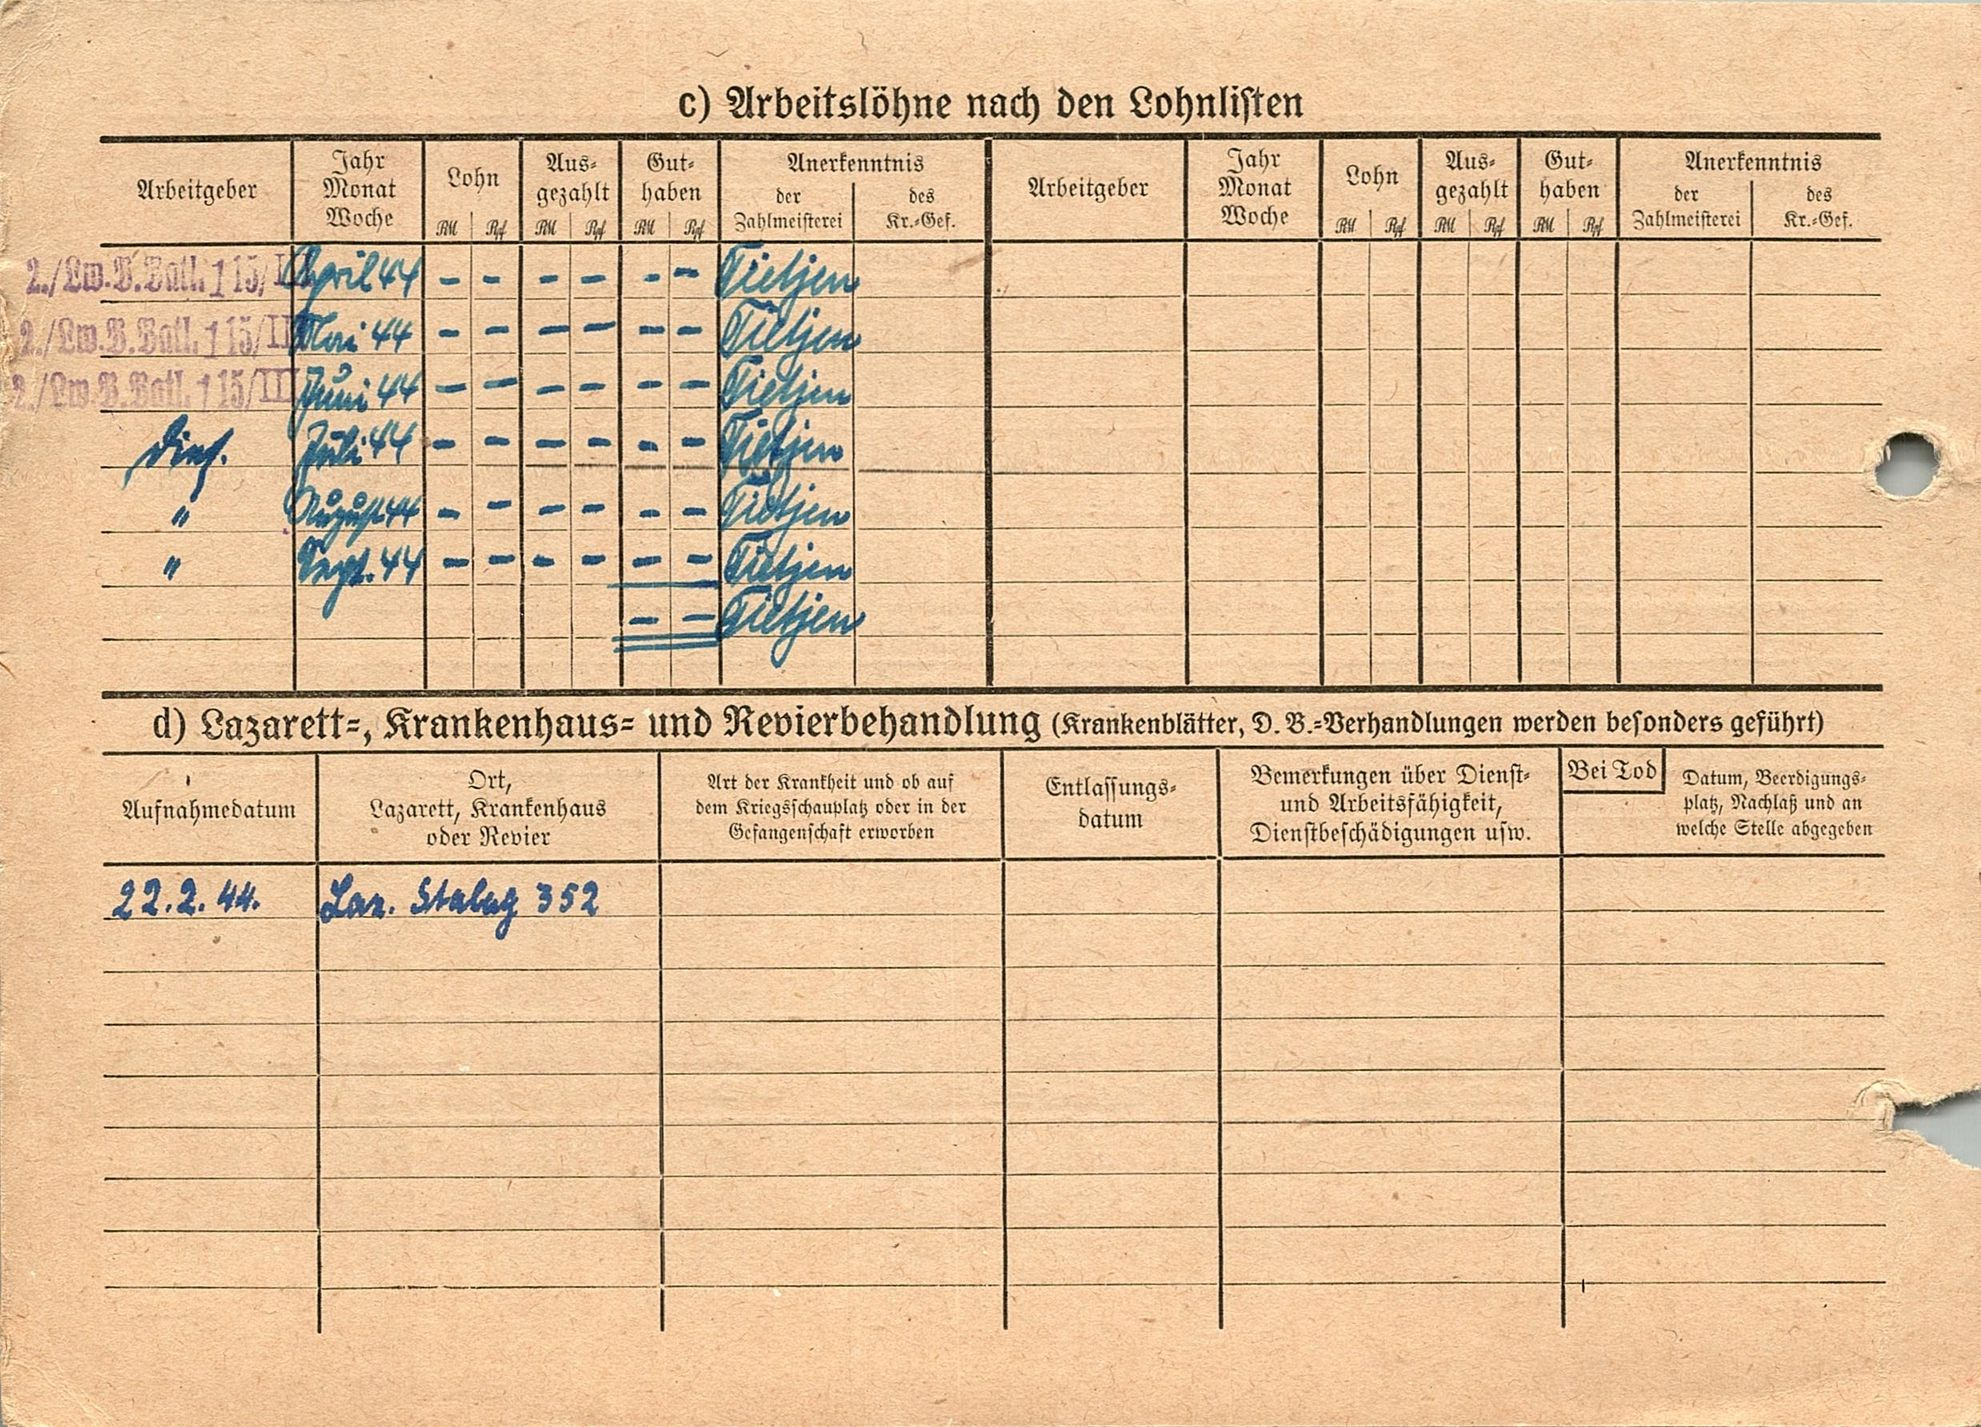 c) Arbeitslöhne nach den Lohnlisten
Arbeitgeber Jahr Monat Woche Lohn Aus- gezahlt Gut- haben Anerkenntnis Arbeitgeber Jahr Monat Woche Lohn Aus- gezahlt Gut- haben Anerkenntnis
der Zahlmeisterei des Kr.-Gef. der Zahlmeisterei des Kr.-Gef.
RM Rpf RM Rpf RM Rpf RM Rpf RM Rpf RM Rpf
2./Lw.B.Batl. 115/III April 44 - - - - - - Tietjen
2./Lw.B.Batl. 115/III Mai 44 - - - - - - Tietjen
2./Lw.B.Batl. 115/III Juni 44 - - - - - - Tietjen
Juli 44 - - - - - - Tietjen
" August 44 - - - - - - Tietjen
" Sept. 44 - - - - - - Tietjen
- - Tietjen
d) Lazarett-, Krankenhaus- und Revierbehandlung (Krankenblätter, D. B.-Verhandlungen werden besonders geführt)
Aufnahmedatum
Ort,
Lazarett, Krankenhaus
oder Revier
Art der Krankheit und ob auf
dem Kriegsschauplatz oder in der
Gefangenschaft erworben
Entlassungs-
datum
Bemerkungen über Dienst-
und Arbeitsfähigkeit,
Dienstbeschädigungen usw.
Bei Tod
Datum, Beerdigungs-
platz, Nachlaß und an
welche Stelle abgegeben
22.2.44. Laz. Stalag 352